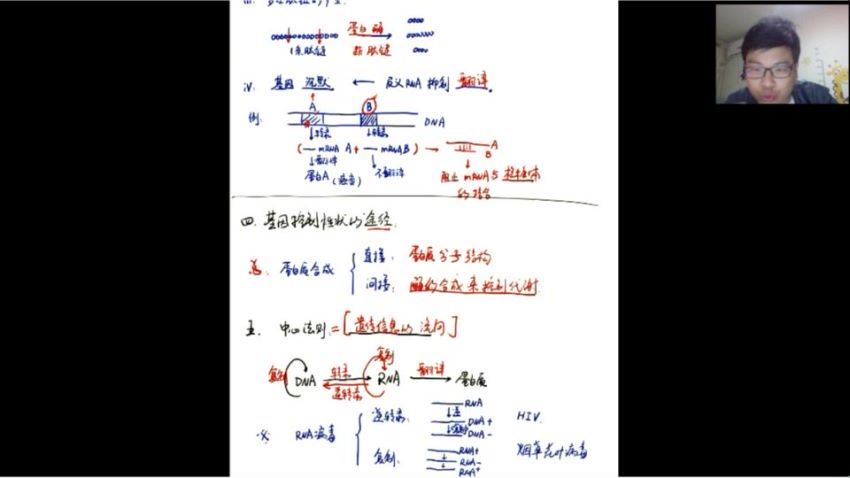 蛋白酶
1条肽链 数肽链
iv. 基因沉默 ← 反义RNA抑制翻译。
A B
例: DNA
↓转录 ↓转录
( mRNA A + mRNA B ) → A
B
↓翻译 不翻译
蛋白A 阻止mRNA与核糖体
的结合
四. 基因控制性状的途径:
蛋白质合成 直接: 蛋白质分子结构
间接: 酶的合成来控制代谢
五. 中心法则:=[遗传信息的流向]
复制
复制 DNA 转录 RNA 翻译 蛋白质
逆转录
RNA病毒 逆转录: RNA
↓逆
DNA+ HIV.
DNA-
复制: RNA+ 烟草花叶病毒
RNA-
RNA+